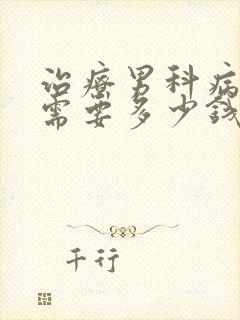 治療男科病
需要多少錢
千行